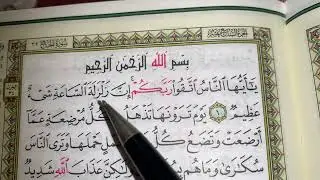 بِسْمِ اللَّهِ الرَّحْمَٰنِ الرَّحِيمِ
يَا أَيُّهَا النَّاسُ اتَّقُوا رَبَّكُمْ ۚ إِنَّ زَلْزَلَةَ السَّاعَةِ شَيْءٌ
عَظِيمٌ ١ يَوْمَ تَرَوْنَهَا تَذْهَلُ كُلُّ مُرْضِعَةٍ عَمَّا
أَرْضَعَتْ وَتَضَعُ كُلُّ ذَاتِ حَمْلٍ حَمْلَهَا وَتَرَى النَّاسَ
سُكَارَىٰ وَمَا هُمْ بِسُكَارَىٰ وَلَٰكِنَّ عَذَابَ اللَّهِ شَدِيدٌ